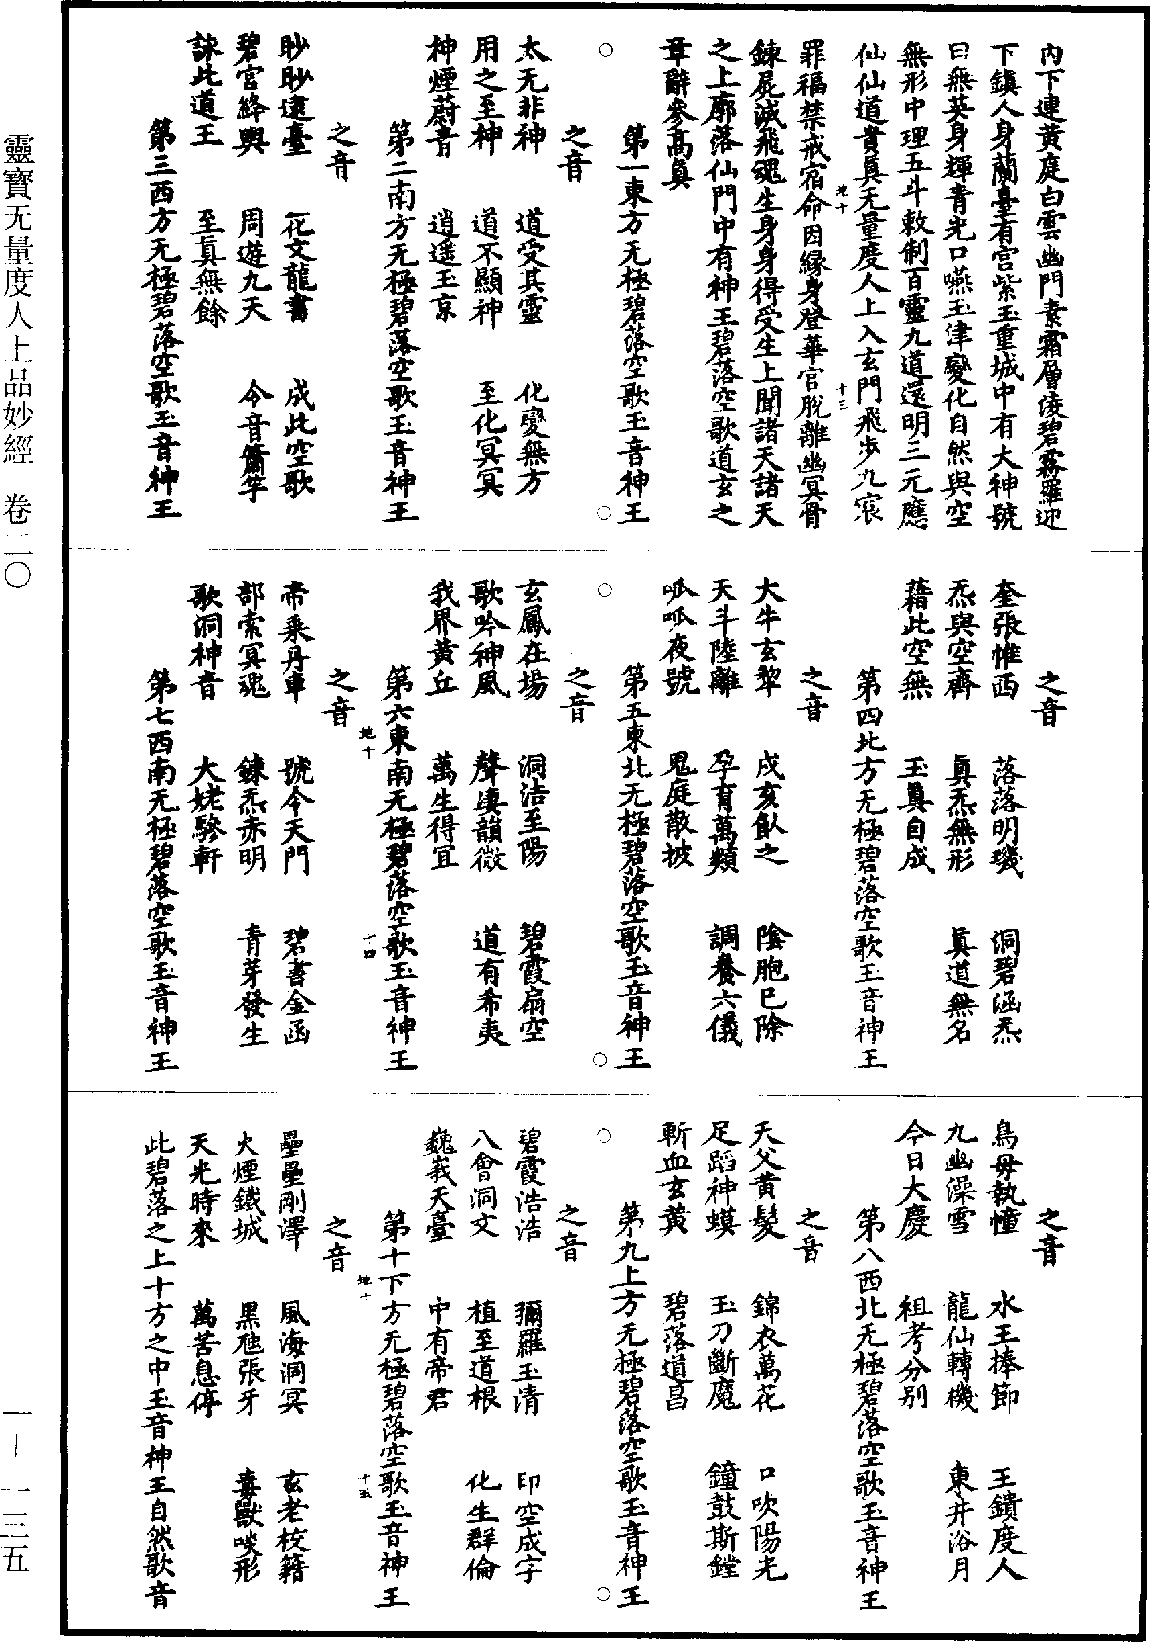 內下連黃庭白雲幽門素霜層凌碧霧羅迎
下鎮人身蘭臺有宮紫玉重城中有大神號
曰無英身輝青光口嚥玉津變化自然與空
無形中理五斗敕制百靈九道還明三元應
仙仙道貴真无量度人上入玄門飛步九宸
地十
十三
罪福禁戒宿命因緣身登華官脫離幽冥骨
鍊屍滅飛魂生身身得受生上聞諸天諸天
之上廓落仙門中有神王碧落空歌道玄之
章辭參高真
第一東方无極碧落空歌玉音神王
之音
太无非神 道受其靈 化變無方
用之至神 道不顯神 至化冥冥
神煙蔚青 逍遥玉京
第二南方无極碧落空歌玉音神王
之音
眇眇遠臺 花文龍書 成此空歌
碧宮絳輿 周遊九天 今音簫竽
誅此道王 至真無餘
第三西方无極碧落空歌玉音神王
之音
奎張帷西 落落明璣 洞碧涵炁
炁與空齊 真炁無形 真道無名
藉此空無 玉真自成
第四北方无極碧落空歌玉音神王
之音
大牛玄犂 戍亥臥之 陰胞已除
天斗陸離 孕育萬類 調養六儀
呱呱夜號 鬼庭散披
第五東北无極碧落空歌玉音神王
之音
玄鳳在場 洞活至陽 碧霞扇空
歌吟神風 聲悽韻微 道有希夷
我界黃丘 萬生得宜
第六東南无極碧落空歌玉音神王
地十
十四
之音
帝乘丹車 號令天門 碧書金函
部索冥魂 鍊炁赤明 青芽發生
歌洞神音 大姥驂軒
第七西南无極碧落空歌玉音神王
之音
烏母執幢 水王捧節 王鐨度人
九幽澡雪 龍仙轉機 東井浴月
今日大慶 祖考分別
第八西北无極碧落空歌玉音神王
之音
天父黃髮 錦衣萬花 口吹陽光
足蹈神蟆 玉刀斷魔 鐘鼓斯鏜
斬血玄黃 碧落道昌
第九上方无極碧落空歌玉音神王
之音
碧霞浩浩 彌羅玉清 印空成字
八會洞文 植至道根 化生群倫
巍峩天臺 中有帝君
第十下方无極碧落空歌玉音神王
地十
十五
之音
壘壘剛澤 風海洞冥 玄老校籍
火煙鐵城 黑虺張牙 毒獸啖形
天光時來 萬苦息停
此碧落之上十方之中玉音神王自然歌音
靈寶无量度人上品妙經 卷二〇
一—一三五